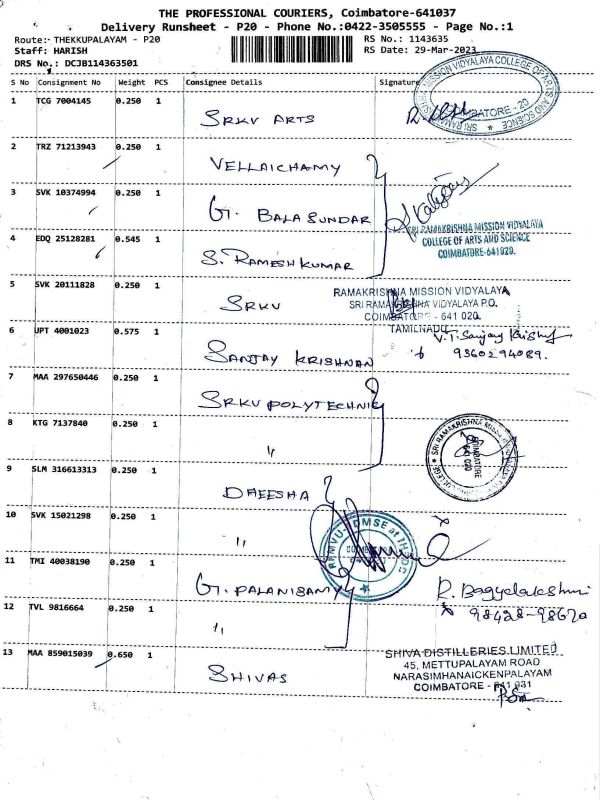 THE PROFESSIONAL COURIERS, Coimbatore-641037
Delivery Runsheet - P20 - Phone No.:0422-3505555 - Page No.:1
Route: THEKKUPALAYAM - P20
RS No.: 1143635
Staff: HARISH
RS Date: 29-Mar-2023
DRS No.: DCJB114363501
S No Consignment No Weight PCS Consignee Details Signature
1 TCG 7004145 0.250 1
SRKV ARTS
SRI RAMAKRISHNA MISSION VIDYALAYA COLLEGE OF ARTS AND SCIENCE
COIMBATORE - 20
2 TRZ 71213943 0.250 1
VELLAICHAMY
3 SVK 10374994 0.250 1
G. BALA SUNDAR
SRI RAMAKRISHNA MISSION VIDYALAYA
COLLEGE OF ARTS AND SCIENCE
COIMBATORE-641020.
4 EDQ 25128281 0.545 1
S. RAMESH KUMAR
5 SVK 20111828 0.250 1
SRKV
RAMAKRISHNA MISSION VIDYALAYA
SRI RAMAKRISHNA VIDYALAYA P.O.
COIMBATORE - 641 020.
TAMILNADU
6 UPT 4001023 0.575 1
SANJAY KRISHNAN
V.T. Sanjay Krishna
9360294089.
7 MAA 297650446 0.250 1
SRKV POLYTECHNIC
8 KTG 7137840 0.250 1
"
COIMBATORE
641 020
9 SLM 316613313 0.250 1
DHEESHA
10 SVK 15021298 0.250 1
"
11 TMI 40038190 0.250 1
G. PALANISAMY
R. Bagyalakshmi
12 TVL 9816664 0.250 1
"
98428-98620
13 MAA 859015039 0.650 1
SHIVAS
SHIVA DISTILLERIES LIMITED
45, METTUPALAYAM ROAD
NARASIMHANAICKENPALAYAM
COIMBATORE - 641 031